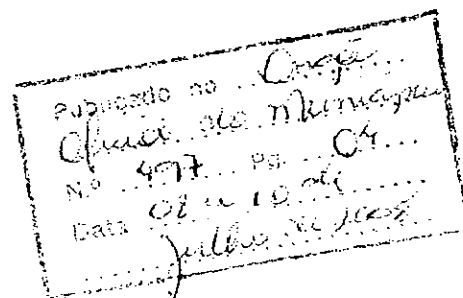 Publicado no Orgão
Oficial do Município
N.º 497 Pg. 04
Data 08 a 10 de
julho de 2008